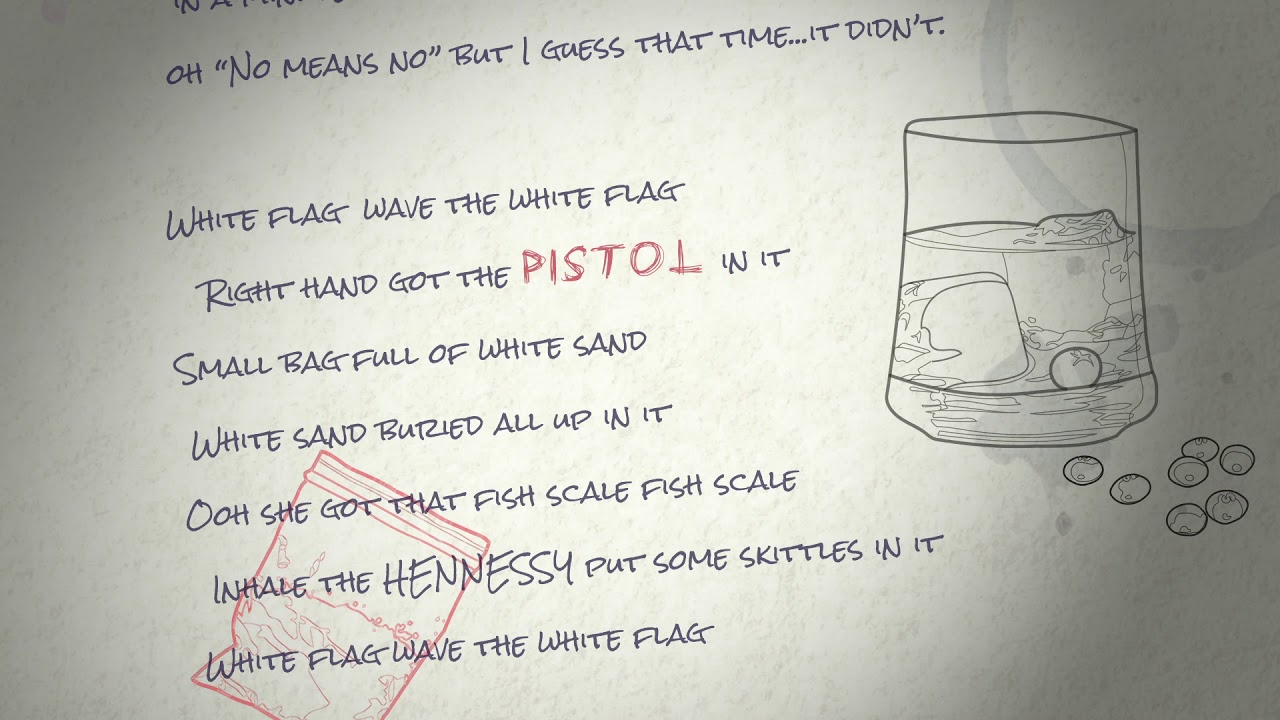 oh “No means no” but I guess that time...it didn't.
White flag wave the white flag
Right hand got the PISTOL in it
Small bag full of white sand
White sand buried all up in it
Ooh she got that fish scale fish scale
Inhale the HENNESSY put some skittles in it
White flag wave the white flag